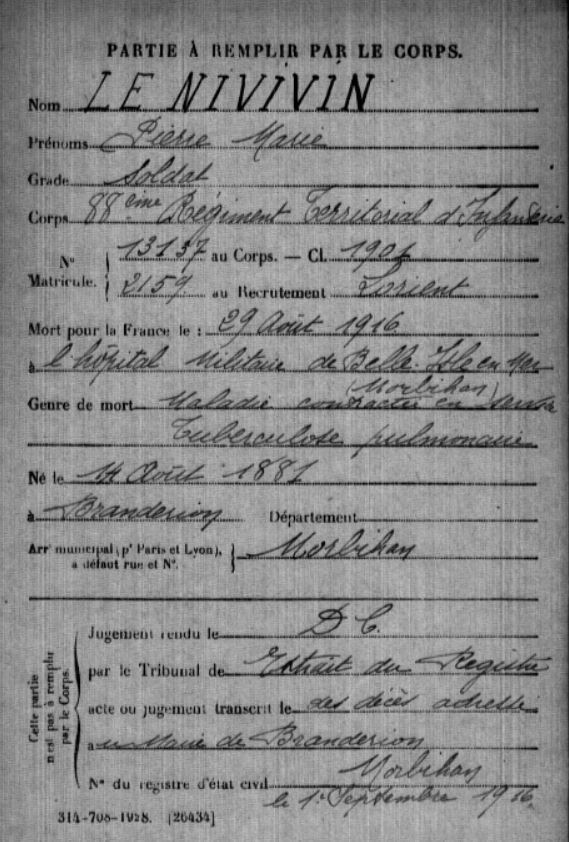 PARTIE À REMPLIR PAR LE CORPS.
Nom LE NIVIVIN
Prénoms Pierre Marie
Grade Soldat
Corps 88ème Régiment Territorial d'Infanterie
Nº Matricule. 13137 au Corps. — Cl. 1901
2159 au Recrutement Lorient
Mort pour la France le : 29 Août 1916
à l'hôpital Militaire de Belle-Isle en Mer
(Morbihan)
Genre de mort Maladie contractée en service
Tuberculose pulmonaire
Né le 14 Août 1881
à Branderion Département
Arrt municipal (pr Paris et Lyon), à défaut rue et Nº. Morbihan
Cette partie n'est pas à remplir par le Corps.
Jugement rendu le D C.
par le Tribunal de Extrait du Registre
acte ou jugement transcrit le des décès adressé
à Maire de Branderion
Morbihan
Nº du registre d'état civil
le 1er Septembre 1916
314-708-1928. [26434]